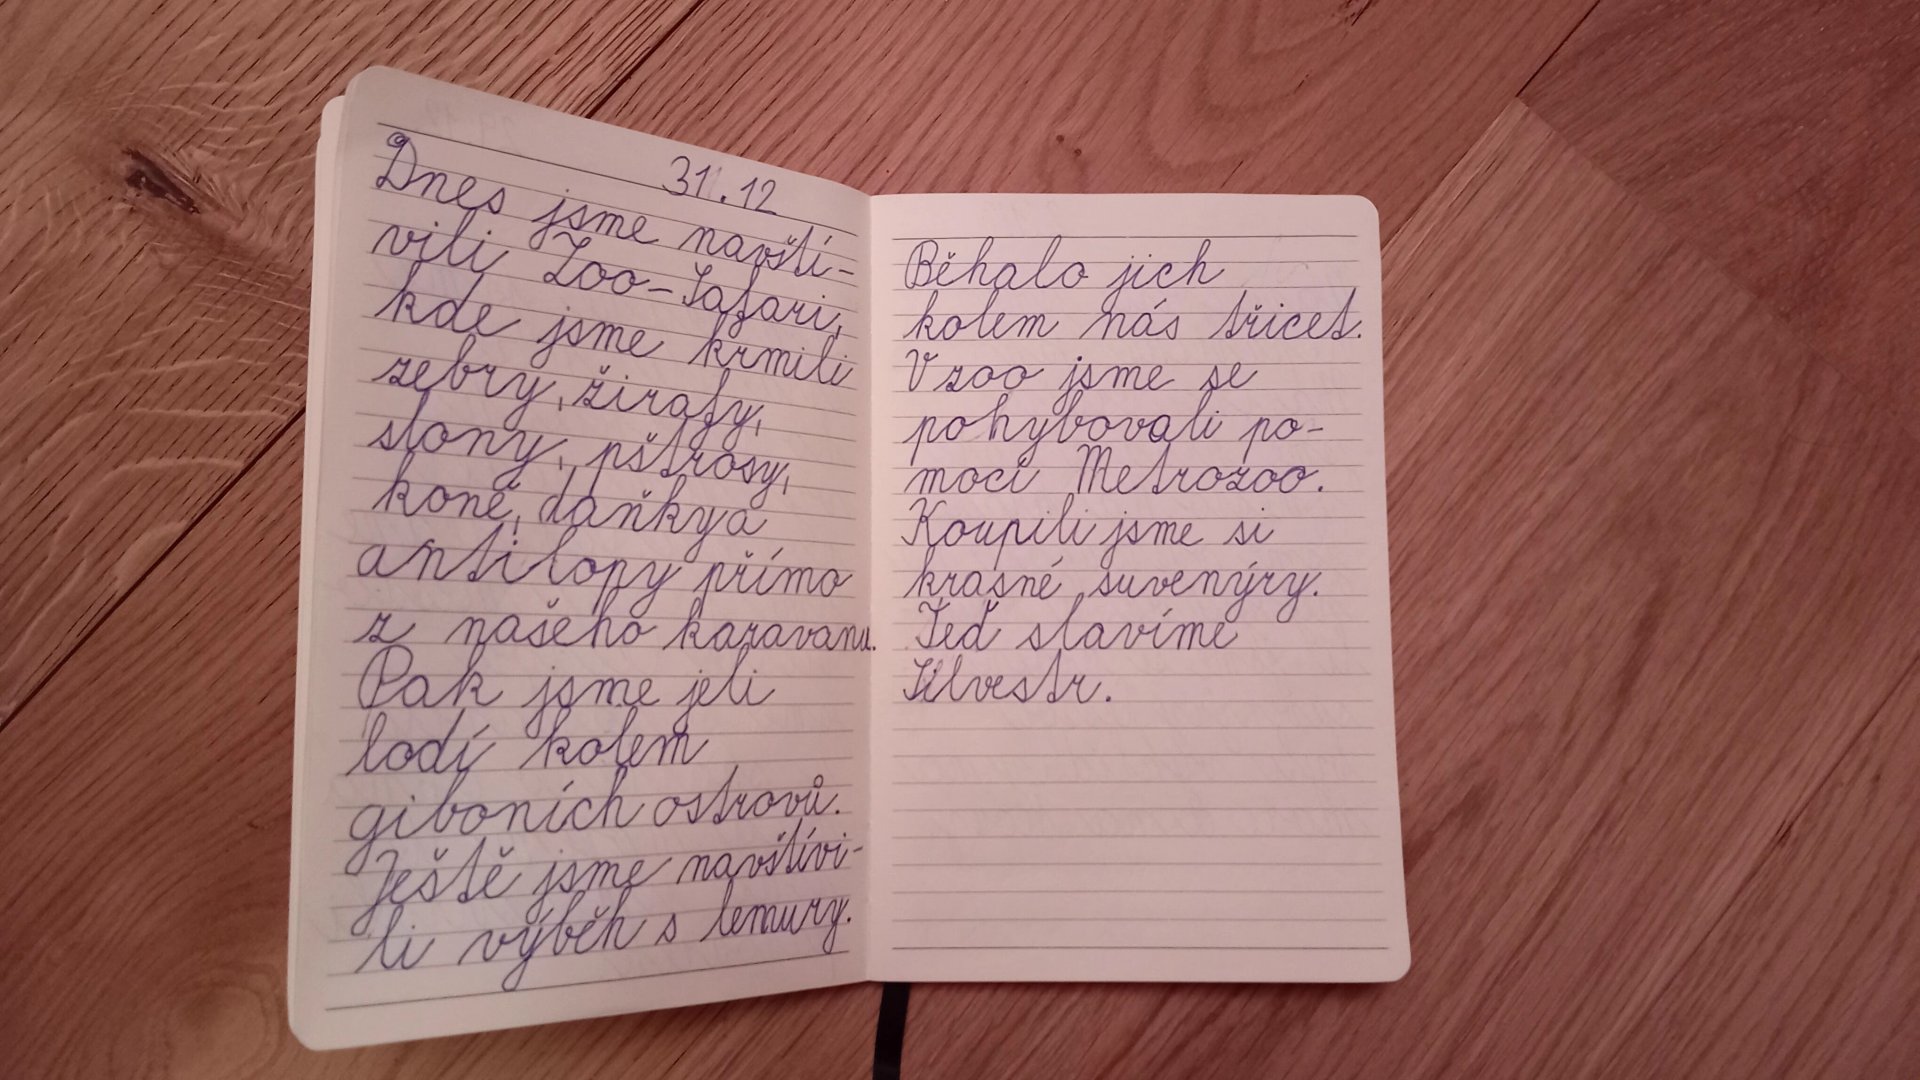 31.12
Dnes jsme navští-
vili Zoo-Safari,
kde jsme krmili
zebry, žirafy,
slony, pštrosy,
koně, daňky a
antilopy přímo
z našeho karavanu.
Pak jsme jeli
lodí kolem
giboních ostrovů.
Ještě jsme navštívi-
li výběh s lemury.
Běhalo jich
kolem nás třicet.
V zoo jsme se
pohybovali po-
mocí Metrozoo.
Koupili jsme si
krasné suvenýry.
Teď slavíme
Silvestr.